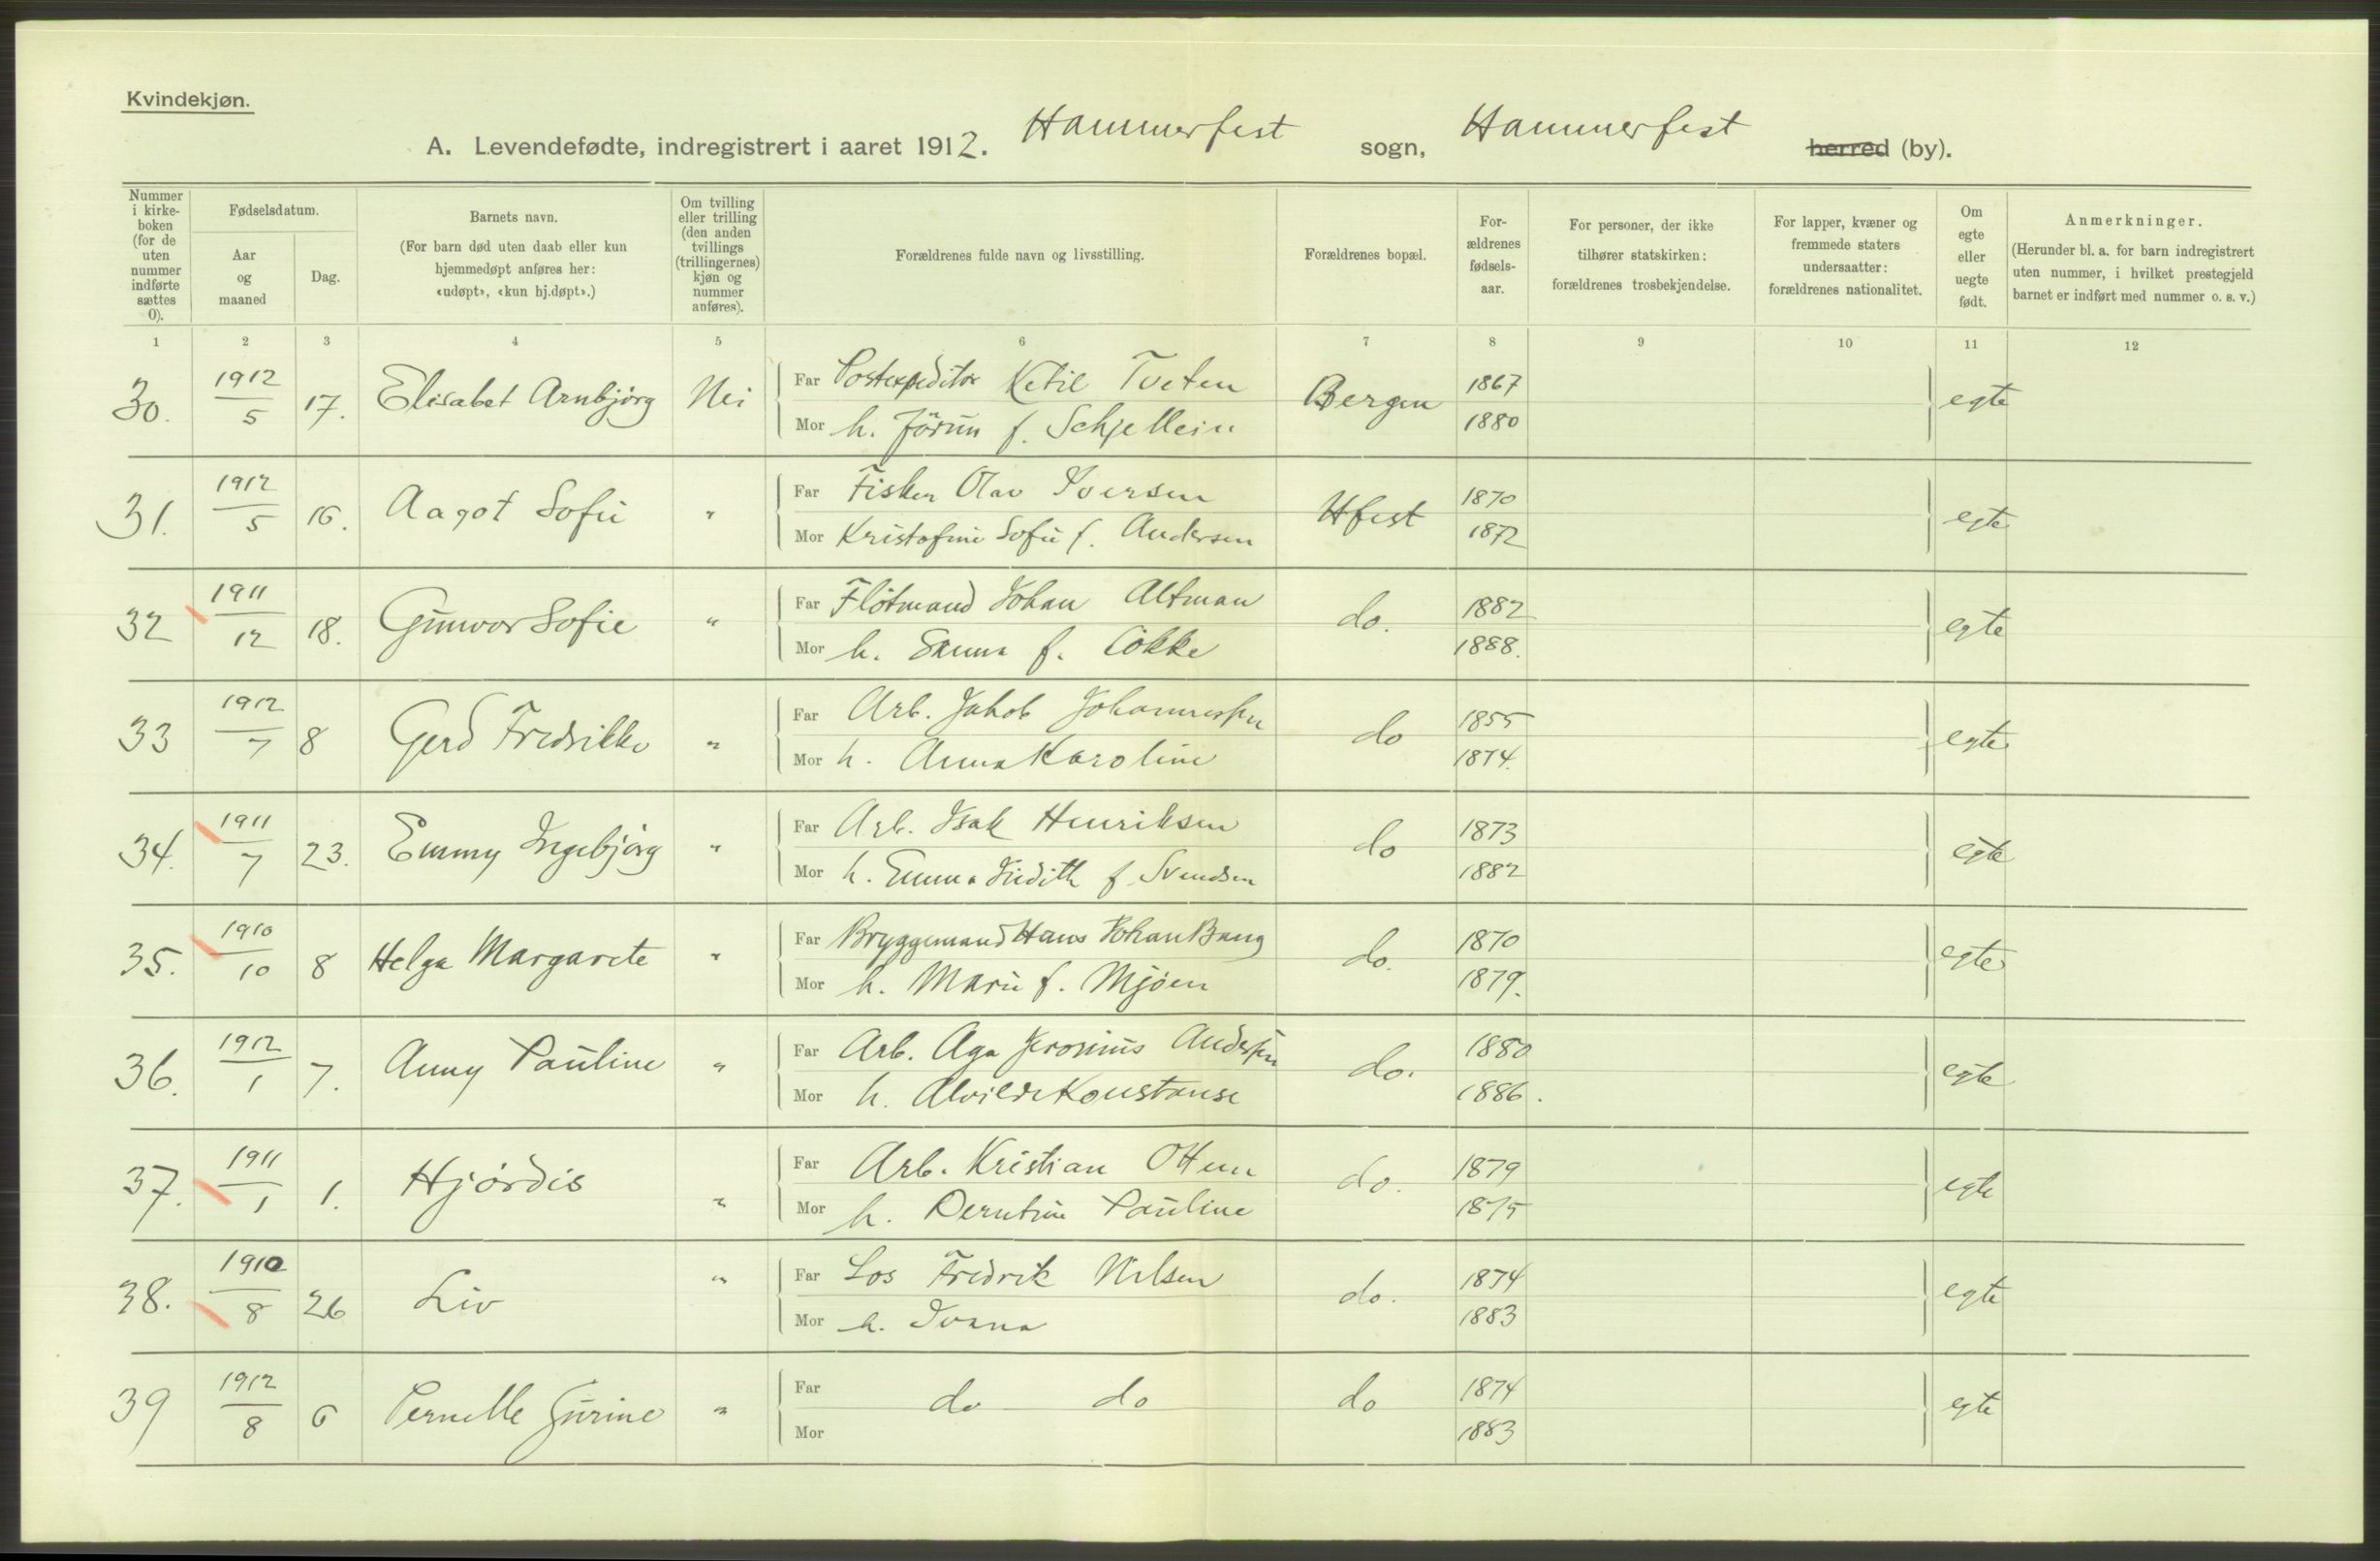 Kvindekjøn.
A. Levendefødte, indregistrert i aaret 1912. Hammerfest sogn, Hammerfest herred (by).
Nummer i kirke-boken (for de uten nummer indførte sættes 0).
Fødselsdatum.
Aar og maaned
Dag.
Barnets navn.
(For barn død uten daab eller kun hjemmedøpt anføres her: «udøpt», «kun hj.døpt».)
Om tvilling eller trilling (den anden tvillings (trillingernes) kjøn og nummer anføres).
Forældrenes fulde navn og livsstilling.
Forældrenes bopæl.
For-ældrenes fødsels-aar.
For personer, der ikke tilhører statskirken: forældrenes trosbekjendelse.
For lapper, kvæner og fremmede staters undersaatter: forældrenes nationalitet.
Om egte eller uegte født.
Anmerkninger.
(Herunder bl. a. for barn indregistrert uten nummer, i hvilket prestegjeld barnet er indført med nummer o. s. v.)
1 2 3 4 5 6 7 8 9 10 11 12
30. 1912/5 17. Elisabet Arnbjørg Nei Far Postexpeditør Ketil Tveten Bergen 1867 egte
Mor h. Jörun f. Schjellein 1880
31. 1912/5 16. Aagot Sofie " Far Fisker Olav Iversen Hfest 1870 egte
Mor Kristofine Sofie f. Andersen 1872
32 1911/12 18. Gunvor Sofie " Far Fløtmand Johan Altman do. 1882 egte
Mor h. f. Løkke 1888.
33 1912/7 8 Gerd Fredrikke " Far Arb. Jakob Johannessen do 1855 egte
Mor h. Anna Karoline 1874.
34. 1911/7 23. Emmy Ingebjørg " Far Arb. Isak Henriksen do 1873 egte
Mor h. Emma Judith f. Svendsen 1882
35. 1910/10 8 Helga Margarete " Far Bryggemand Hans Johan Bang do. 1870 egte
Mor h. Marie f. Mjøen 1879.
36. 1912/1 7. Anny Pauline " Far Arb. Aga Jeronius Andersen do. 1880 egte
Mor h. Alvilde Konstanse 1886.
37. 1911/1 1. Hjørdis " Far Arb. Kristian Ottem do. 1879 egte
Mor h. Pauline 1875
38. 1910/8 26 Liv " Far Los Fredrik Nilsen do. 1874 egte
Mor h. Ivana 1883
39 1912/8 6 Pernelle Gurine " Far do do do 1874 egte
Mor 1883